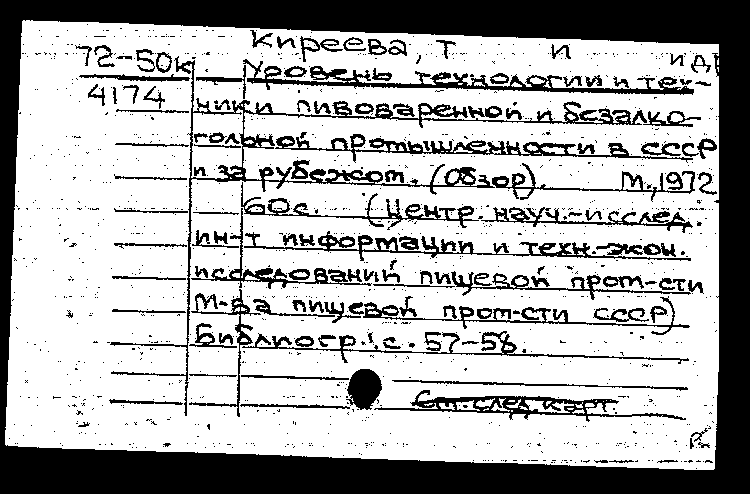 Киреева, Т И и др
72-50к Уровень технологии и тех-
4174 ники пивоваренной и безалко-
гольной промышленности в СССР
и за рубежом. (Обзор). М., 1972
60с. (Центр. науч.-исслед.
ин-т информации и техн.-экон.
исследований пищевой пром-сти
М-ва пищевой пром-сти СССР)
Библиогр.: с. 57-58.
См. след. карт.